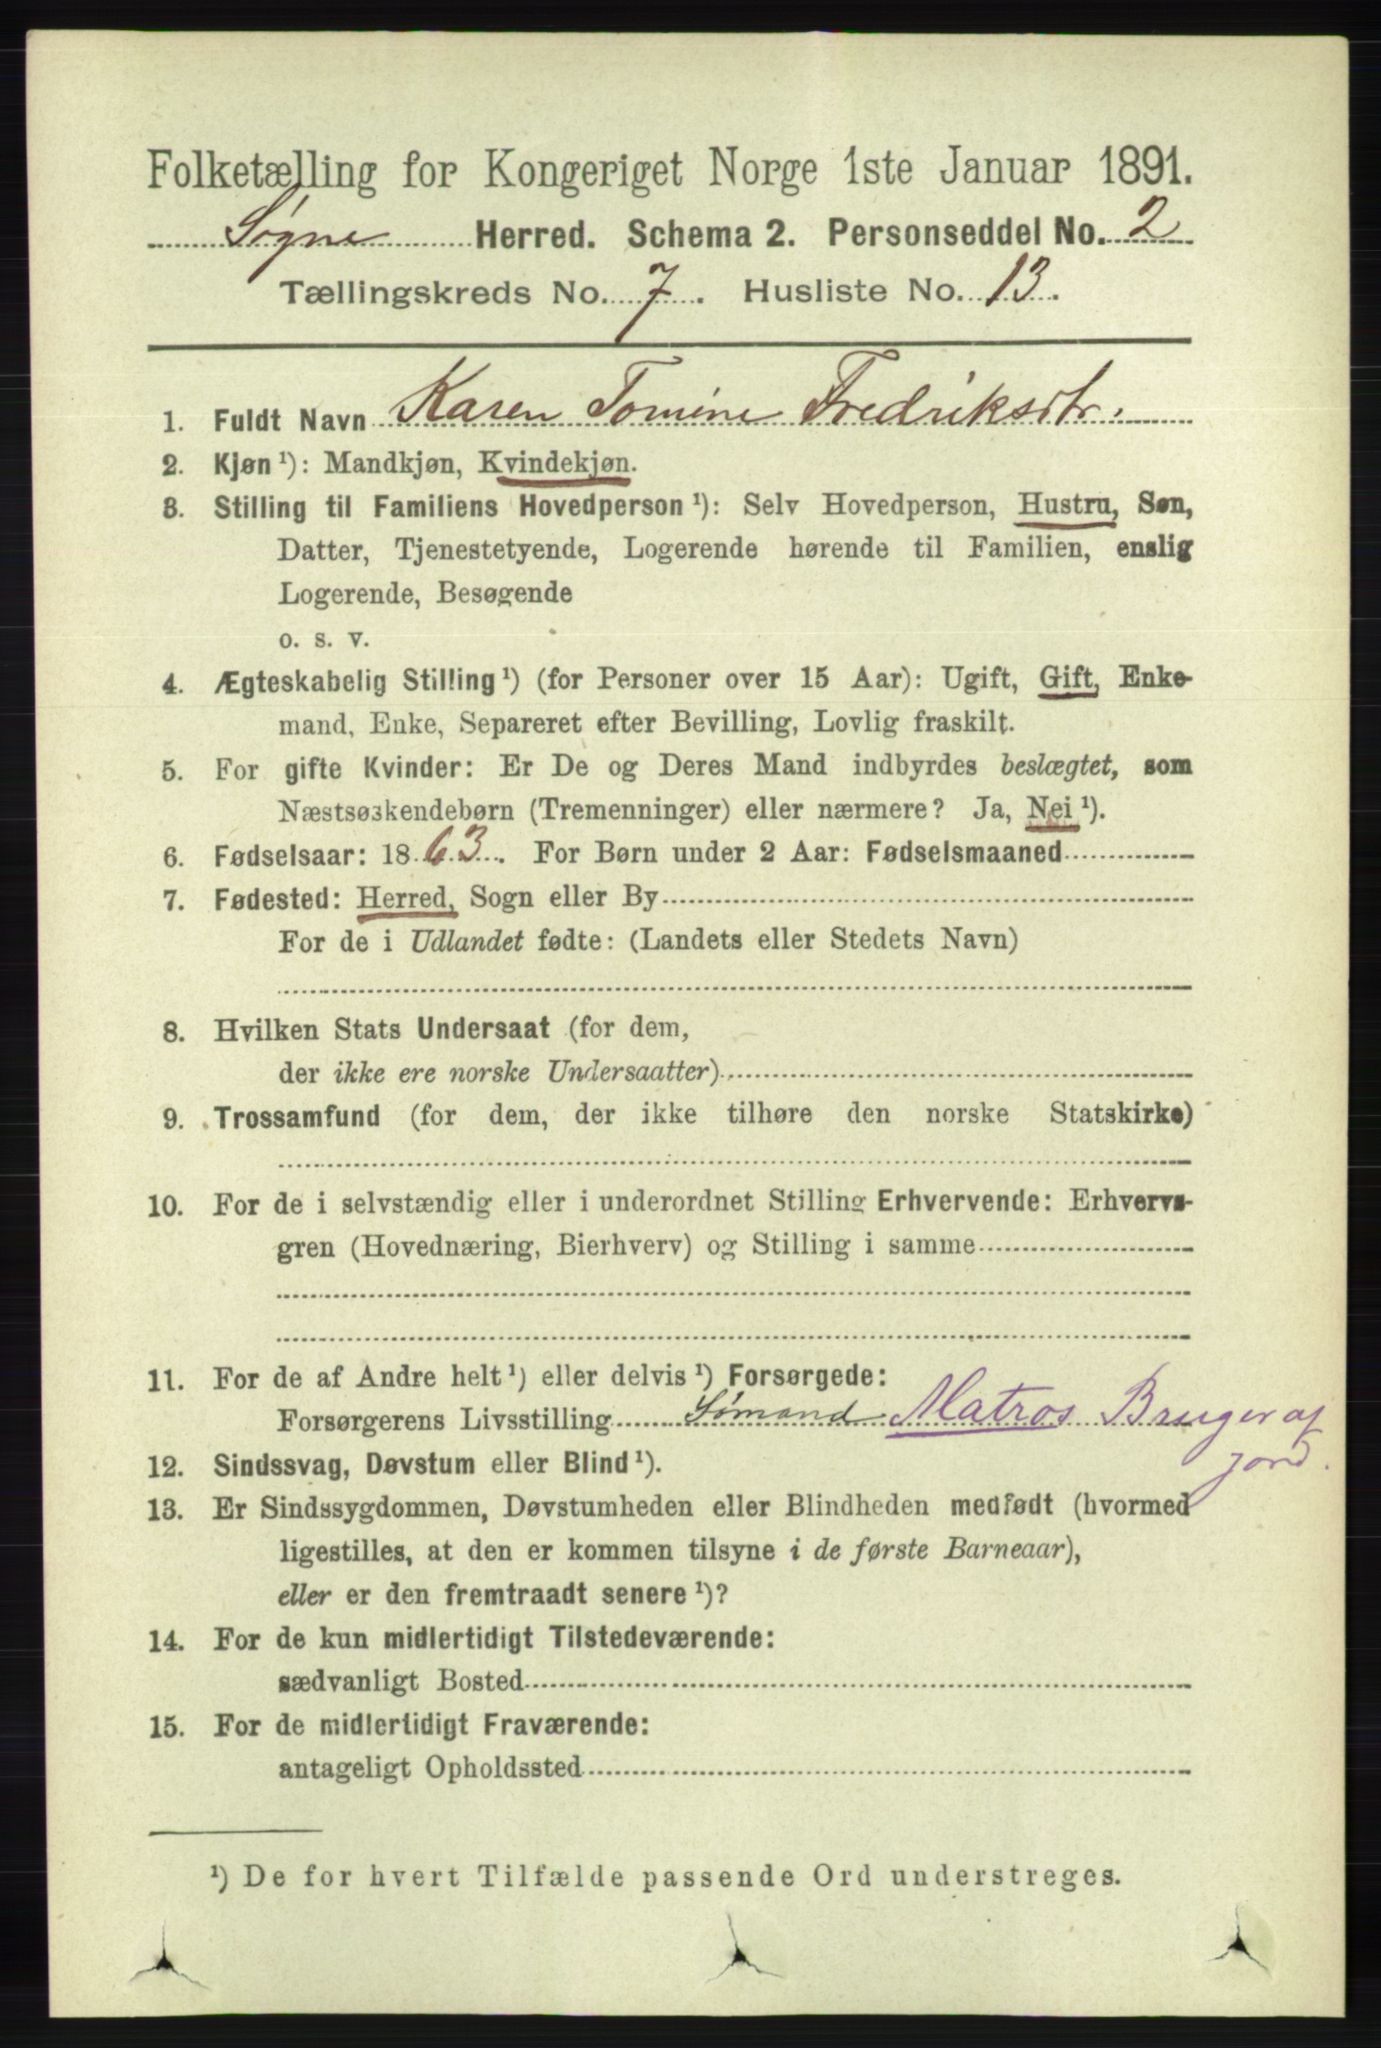 Folketælling for Kongeriget Norge 1ste Januar 1891.
Søgne Herred. Schema 2. Personseddel No. 2
Tællingskreds No. 7. Husliste No. 13.
1. Fuldt Navn Karen Tomine Fredriksdtr.
2. Kjøn ¹): Mandkjøn, Kvindekjøn.
3. Stilling til Familiens Hovedperson ¹): Selv Hovedperson, Hustru, Søn,
Datter, Tjenestetyende, Logerende hørende til Familien, enslig
Logerende, Besøgende
o. s. v.
4. Ægteskabelig Stilling ¹) (for Personer over 15 Aar): Ugift, Gift, Enke-
mand, Enke, Separeret efter Bevilling, Lovlig fraskilt.
5. For gifte Kvinder: Er De og Deres Mand indbyrdes beslægtet, som
Næstsøskendebørn (Tremenninger) eller nærmere? Ja, Nei ¹).
6. Fødselsaar: 1863. For Børn under 2 Aar: Fødselsmaaned
7. Fødested: Herred, Sogn eller By
For de i Udlandet fødte: (Landets eller Stedets Navn)
8. Hvilken Stats Undersaat (for dem,
der ikke ere norske Undersaatter)
9. Trossamfund (for dem, der ikke tilhøre den norske Statskirke)
10. For de i selvstændig eller i underordnet Stilling Erhvervende: Erhvervs-
gren (Hovednæring, Bierhverv) og Stilling i samme
11. For de af Andre helt ¹) eller delvis ¹) Forsørgede:
Forsørgerens Livsstilling Sømand Matros Bruger af
jord.
12. Sindssvag, Døvstum eller Blind ¹).
13. Er Sindssygdommen, Døvstumheden eller Blindheden medfødt (hvormed
ligestilles, at den er kommen tilsyne i de første Barneaar),
eller er den fremtraadt senere ¹)?
14. For de kun midlertidigt Tilstedeværende:
sædvanligt Bosted
15. For de midlertidigt Fraværende:
antageligt Opholdssted
¹) De for hvert Tilfælde passende Ord understreges.